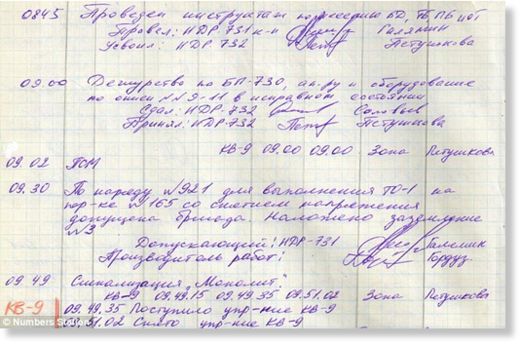 0845 Проведен инструктаж по несению БД, ТБ ПБ
Провел: НДР 731 к-н Галяпин
Усвоил: НДР 732 Петушкова
09.00 Дежурство по БП-730, ап.ру и оборудование
по описи №№9-11 в исправном состоянии
Сдал: НДР 732 Соловьев
Принял: НДР-732 Петушкова
КВ-9 09.00 09.00 Зона Петушкова
09.02
09.30 По наряду №921 для выполнения ТО-1 на
№165 со снятием напряжения
допущена бригада. Наложено заземление
№3
Допускающий: НДР-731
Производитель работ:
09 49 Сигнализация "Монолит"
КВ-9 09.49.15 09.49.35 09.51.02 Зона Петушкова
КВ-9 09.49.35 Поступило упр-ние КВ-9
09.51.02 Снято упр-ние КВ-9
© Numbers Stations